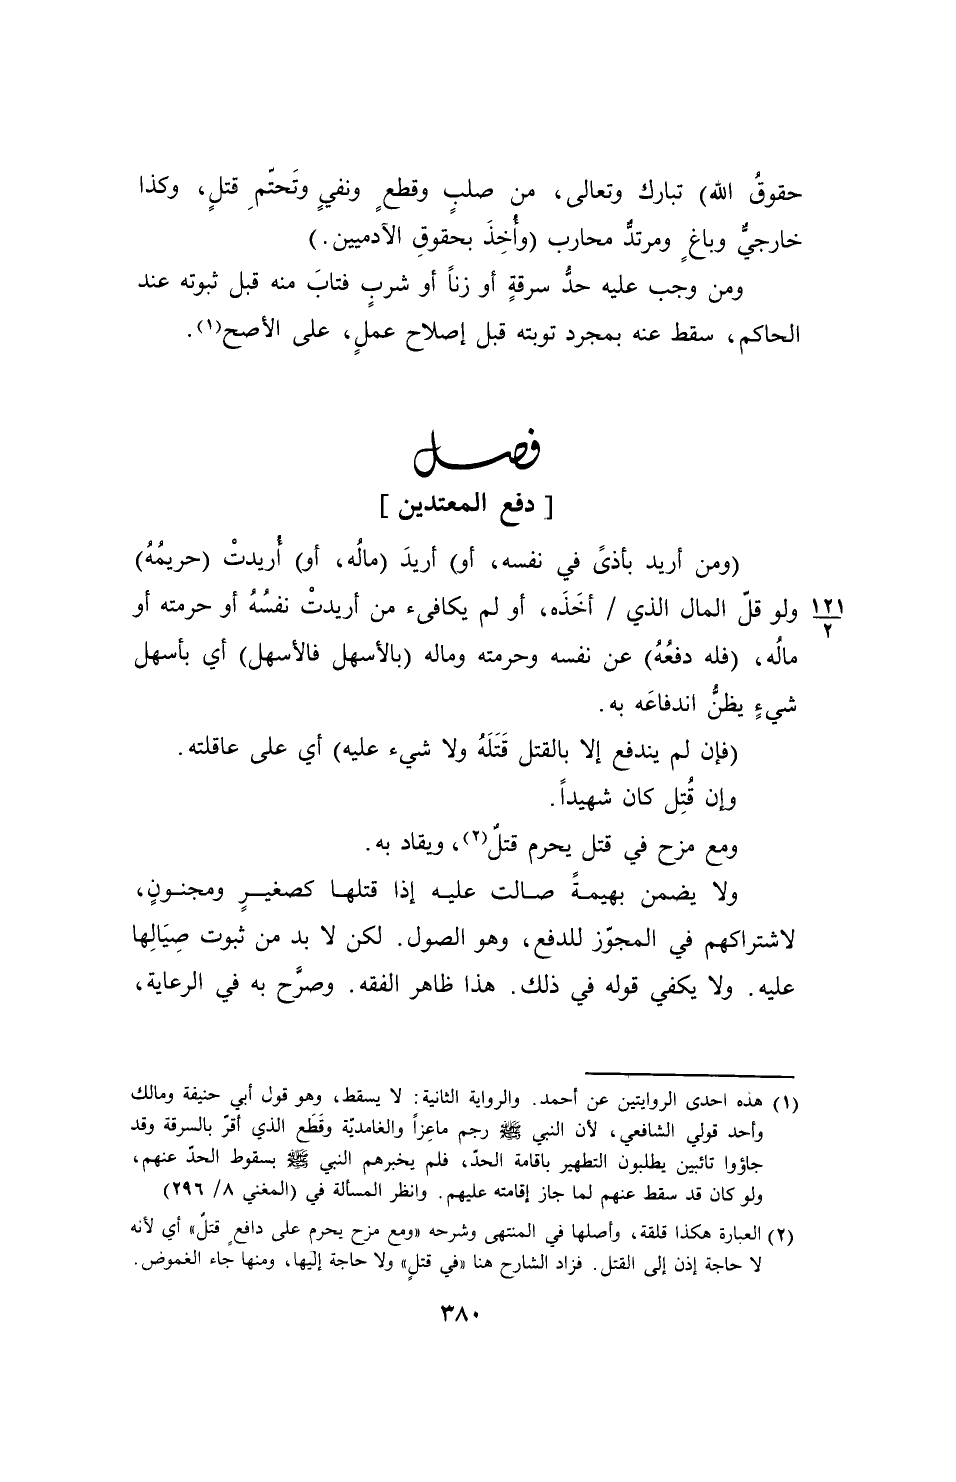 حقوقُ الله) تبارك وتعالى، من صلبٍ وقطعٍ ونفيٍ وتَحتّمِ قتلٍ، وكذا
خارجيٌّ وباغٍ ومرتدٌّ محارب (وأُخِذَ بحقوقِ الآدميين.)
ومن وجب عليه حدُّ سرقةٍ أو زناً أو شربٍ فتابَ منه قبل ثبوته عند
الحاكم، سقط عنه بمجرد توبته قبل إصلاح عملٍ، على الأصح(١).
فصل
[ دفع المعتدين ]
(ومن أريد بأذىً في نفسه، أو) أريدَ (مالُه، أو) أُريدتْ (حريمُهُ)
ولو قلّ المال الذي / أخَذَه، أو لم يكافىء من أريدتْ نفسُهُ أو حرمته أو
١٢١
٢
مالُه، (فله دفعُهُ) عن نفسه وحرمته وماله (بالأسهل فالأسهل) أي بأسهل
شيءٍ يظنُّ اندفاعَه به.
(فإن لم يندفع إلا بالقتل قَتَلَهُ ولا شيء عليه) أي على عاقلته.
وإن قُتِل كان شهيداً.
ومع مزح في قتل يحرم قتلٌ(٢)، ويقاد به.
ولا يضمن بهيمةً صالت عليه إذا قتلها كصغيرٍ ومجنونٍ،
لاشتراكهم في المجوّز للدفع، وهو الصول. لكن لا بد من ثبوت صِيَالِها
عليه. ولا يكفي قوله في ذلك. هذا ظاهر الفقه. وصرَّح به في الرعاية،
(١) هذه احدى الروايتين عن أحمد. والرواية الثانية: لا يسقط، وهو قول أبي حنيفة ومالك
وأحد قولي الشافعي، لأن النبي ﷺ رجم ماعِزاً والغامديّة وقَطَع الذي أقرّ بالسرقة وقد
جاؤوا تائبين يطلبون التطهير باقامة الحدّ، فلم يخبرهم النبي ﷺ بسقوط الحدّ عنهم،
ولو كان قد سقط عنهم لما جاز إقامته عليهم. وانظر المسألة في (المغني ٨/ ٢٩٦)
(٢) العبارة هكذا قلقة، وأصلها في المنتهى وشرحه «ومع مزح يحرم على دافعٍ قتلٌ» أي لأنه
لا حاجة إذن إلى القتل. فزاد الشارح هنا «في قتلٍ» ولا حاجة إليها، ومنها جاء الغموض.
٣٨٠